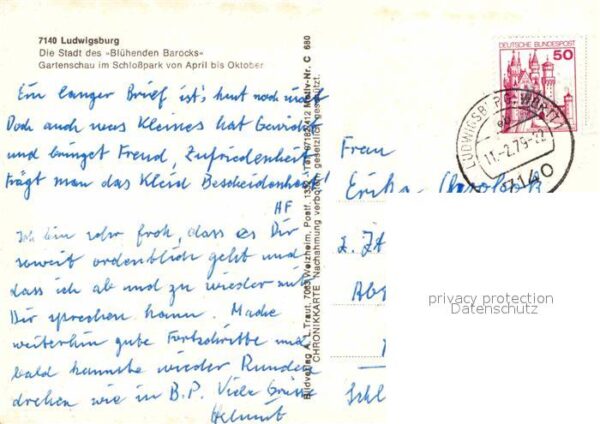 7140 Ludwigsburg
Die Stadt des »Blühenden Barocks«
Gartenschau im Schloßpark von April bis Oktober
Ein langer Brief ist's heut noch nicht
Doch auch was Kleines hat Gewicht
und bringet Freud, Zufriedenheit
Trägt man das Kleid Bescheidenheit!
AF
Ich bin sehr froh, dass es Dir
soweit ordentlich geht und
dass ich ab und zu wieder mit
Dir sprechen kann. Mache
weiterhin gute Fortschritte und
bald kannste wieder Runden
drehen wie in B.P. Viele Grüsse
Helmut
Bildverlag A. L. Traut, 7063 Welzheim, Postf. 1352
Motiv-Nr. C 680
CHRONIKKARTE Nachahmung verboten, gesetzlich geschützt.
DEUTSCHE BUNDESPOST
50
LUDWIGSBURG, WÜRTT
11.-2.79-22
7140
Frau
Erika
z. Zt
Abs
Schl
privacy protection
Datenschutz